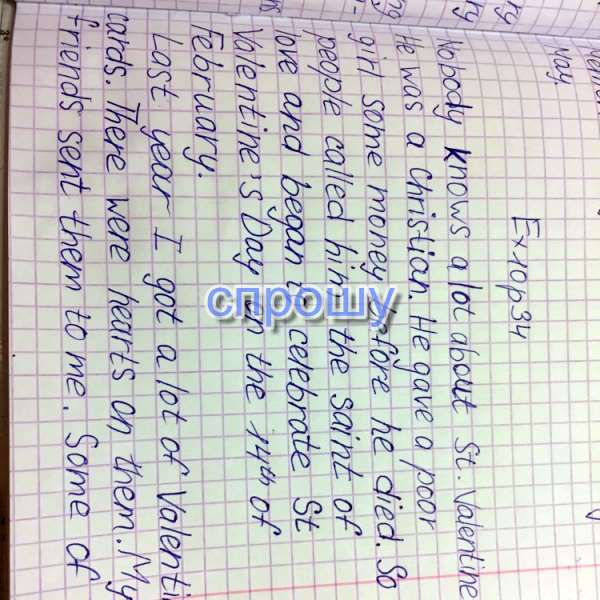 Ex 10 p 34
Nobody knows a lot about St. Valentine
He was a Christian. He gave a poor
girl some money before he died. So
people called him the saint of
love and began to celebrate St
Valentine's Day on the 14th of
February.
Last year I got a lot of Valenti
cards. There were hearts on them. My
friends sent them to me. Some of
спрошу